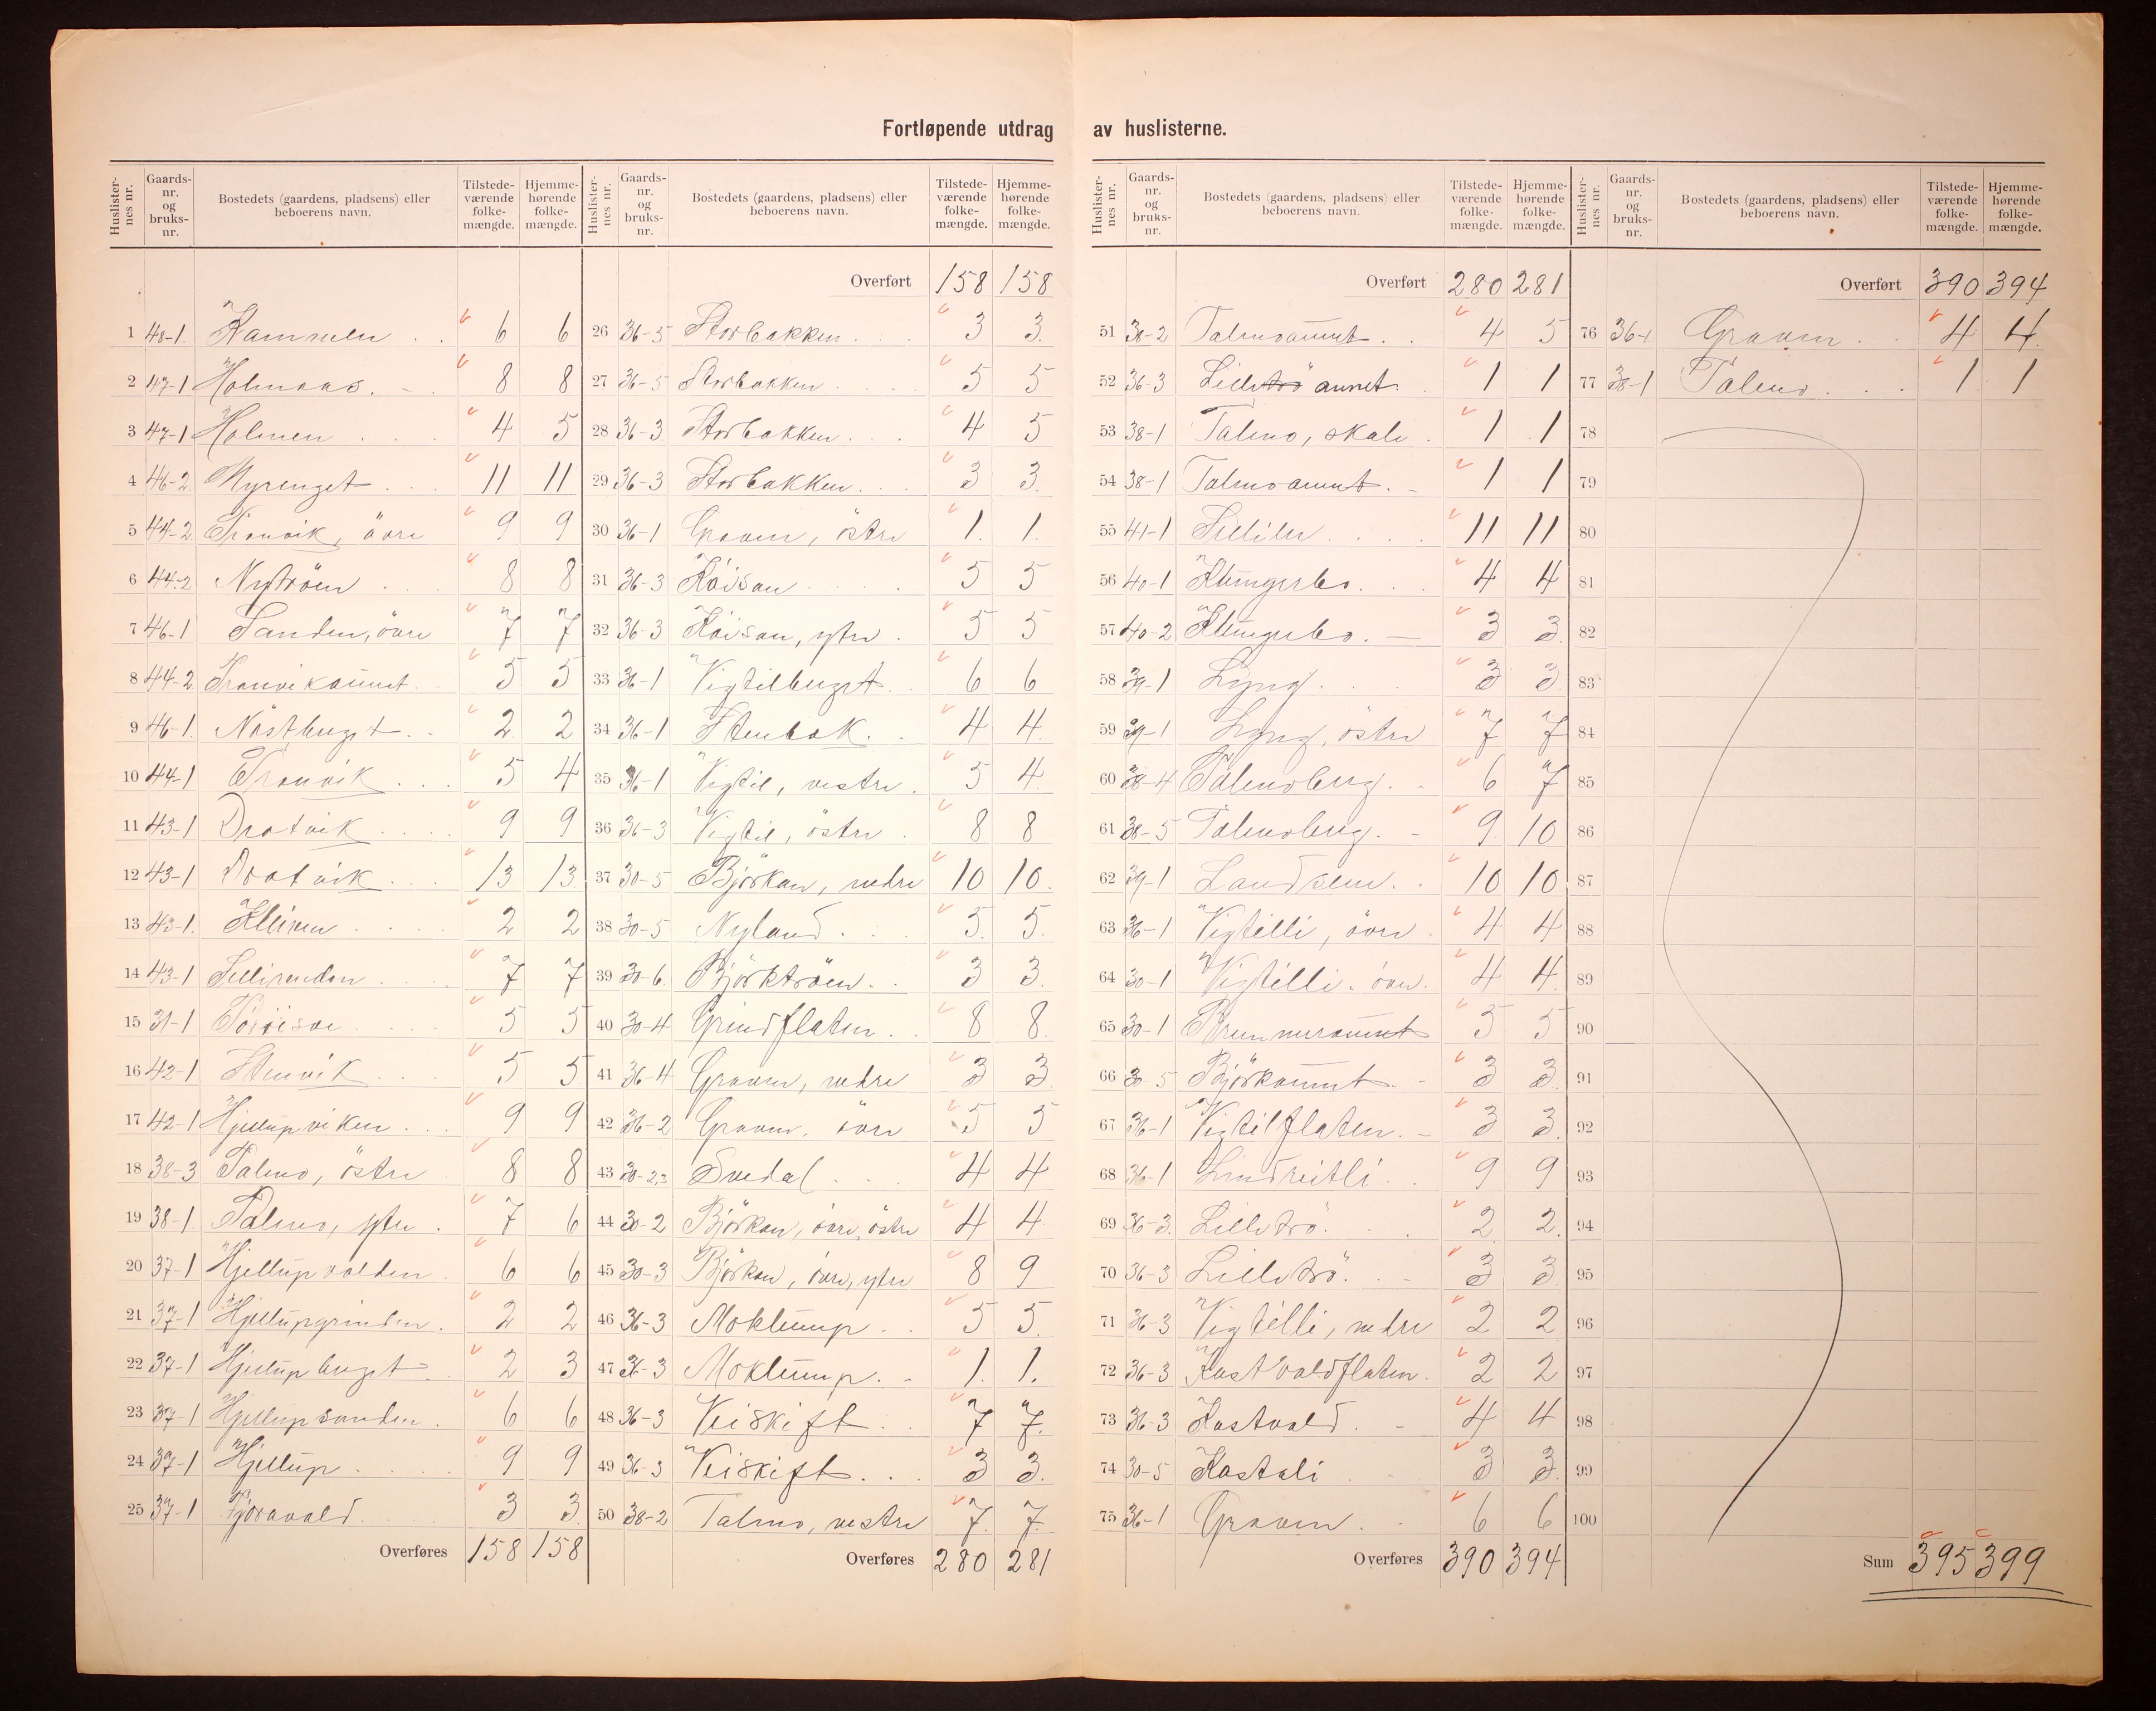 Fortløpende utdrag av huslisterne.
Huslister-nes nr. Gaards-nr. og bruks-nr. Bostedets (gaardens, pladsens) eller beboerens navn. Tilstede-værende folke-mængde. Hjemme-hørende folke-mængde.
1 48-1. Kammelen . . 6 6
2 47-1 Holmaas. - 8 8
3 47-1 Holmen . . . 4 5
4 46-2 Myrenget . . . 11 11
5 44-2 Tronvik, övre 9 9
6 44-2 Nytröen . . . 8 8
7 46-1 Sanden, övre 7 7
8 44-2 Tronvikaunet 5 5
9 46-1. Nöstberget . - 2 2
10 44-1 Tronvik . . . 5 4
11 43-1 Dratvik . . . . 9 9
12 43-1 Dratvik . . . 13 13
13 43-1. Kleiven . . . . 2 2
14 43-1 Sellirenden . . . . 7 7
15 31-1 5 5
16 42-1 Stenvik . . . 5 5
17 42-1 Hjellupviken . . . 9 9
18 38-3 Talmo, östre 8 8
19 38-1 Talmo, ytre . 7 6
20 37-1 Hjellupvolden 6 6
21 37-1 Hjellupgrinden . 2 2
22 37-1 Hjellupberget 2 3
23 37-1 Hjellupsanden . 6 6
24 37-1 Hjellup . . . . 9 9
25 37-1 Fjöravald . . . 3 3
Overføres 158 158
Huslister-nes nr. Gaards-nr. og bruks-nr. Bostedets (gaardens, pladsens) eller beboerens navn. Tilstede-værende folke-mængde. Hjemme-hørende folke-mængde.
Overført 158 158
26 36-5 Storbakken . . . 3 3.
27 36-5 Storbakken . . . 5 5
28 36-3 Storbakken . . . 4 5
29 36-3 Storbakken . . . 3 3.
30 36-1 Graven, östre 1. 1.
31 36-3 Köisan . . . . 5 5
32 36-3 Köisan, ytre . 5 5
33 36-1 Vigtilberget . 6 6
34 36-1 Stenbak . . 4 4
35 36-1 Vigtil, vestre . 5 4
36 36-3 Vigtil, östre . 8 8
37 30-5 Björkan, nedre 10 10.
38 30-5 Nyland . . . 5. 5.
39 30-6. Björktröen . . 3 3.
40 30-4 Grindflaten . . 8 8.
41 36-4 Graven, nedre 3 3
42 36-2 Graven, övre 5 5
43 30-2,3 Svedal . . . 4 4
44 30-2 Björkan, övre, östre 4 4
45 30-3 Björkan, övre, ytre 8 9
46 36-3 Moklump . . 5 5.
47 36-3 Moklump . - 1. 1.
48 36-3 Veiskift . . 7 7.
49 36-3 Veiskift . . . 3 3.
50 38-2 Talmo, vestre 7. 7.
Overføres 280 281
Huslister-nes nr. Gaards-nr. og bruks-nr. Bostedets (gaardens, pladsens) eller beboerens navn. Tilstede-værende folke-mængde. Hjemme-hørende folke-mængde.
Overført 280 281
51 38-2 Talmoaunet . . 4 5
52 36-3 Lilletrö aunet . 1 1
53 38-1 Talmo, skole . 1 1
54 38-1 Talmoaunet . - 1 1
55 41-1 . . . . 11 11
56 40-1 Klungerbo . . . 4 4
57 40-2 Klungerbo . — 3 3.
58 39-1 Lyng . . . 3 3
59 39-1 Lyng, östre 7 7
60 38-4 Talmoberg . - 6 7
61 38-5 Talmoberg . - 9. 10
62 39-1 Landsem . . 10 10
63 36-1 Vigtilli, övre . 4 4
64 30-1 Vigtilli, övre . 4 4
65 30-1 5 5
66 30-5 Björkaunet . - 3 3.
67 36-1 Vigtilflaten . - 3 3.
68 36-1 Lindseitli . . 9 9
69 36-3. Lilletrö . . . 2 2.
70 36-3 Lilletrö . . - 3 3
71 36-3 Vigtilli, nedre 2 2
72 36-3 Kastvoldflaten . 2 2
73 36-3 Kastvold . - 4 4
74 30-5 Kastali . . 3 3
75 36-1 Graven . . 6 6
Overføres 390 394
Huslister-nes nr. Gaards-nr. og bruks-nr. Bostedets (gaardens, pladsens) eller beboerens navn. Tilstede-værende folke-mængde. Hjemme-hørende folke-mængde.
Overført 390 394
76 36-1 Graven . . 4 4.
77 38-1 Talmo . . . 1 1
78
79
80
81
82
83
84
85
86
87
88
89
90
91
92
93
94
95
96
97
98
99
100
Sum 395 399